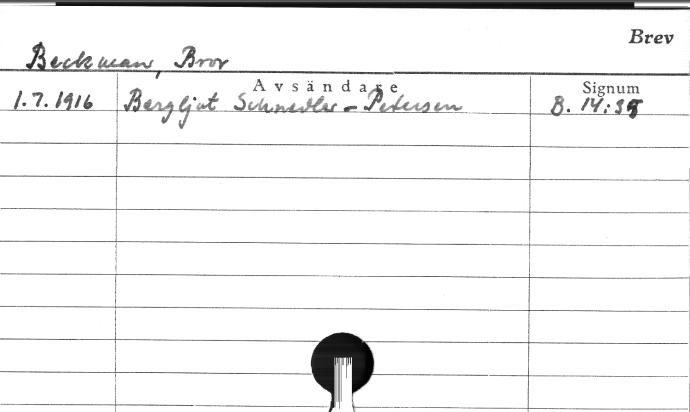 Brev
Beckman, Bror
Avsändare
Signum
1.7.1916 Bergljot Schnedler-Petersen B. 14: